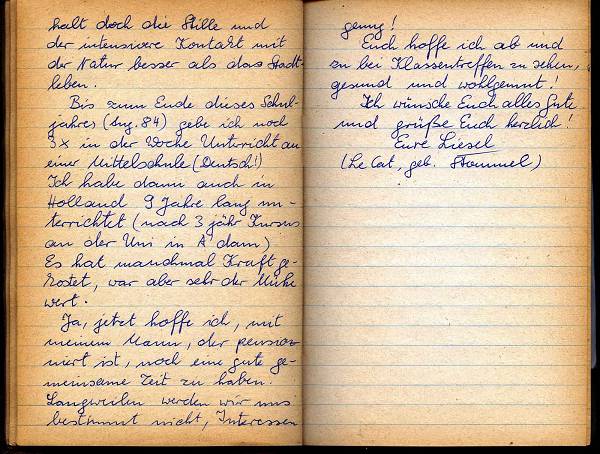 halt doch die Stille und
der intensivere Kontakt mit
der Natur besser als das Stadt-
leben.
Bis zum Ende dieses Schul-
jahres (Aug. 84) gebe ich noch
3x in der Woche Unterricht an
einer Mittelschule (Deutsch!)
Ich habe dann auch in
Holland 9 Jahre lang un-
terrichtet (nach 3 jähr Kursus
an der Uni in A'dam)
Es hat manchmal Kraft ge-
kostet, war aber sehr der Mühe
wert.
Ja, jetzt hoffe ich, mit
meinem Mann, der pensio-
niert ist, noch eine gute ge-
meinsame Zeit zu haben.
Langweilen werden wir uns
bestimmt nicht, Interessen
genug!
Euch hoffe ich ab und
zu bei Klassentreffen zu sehen,
gesund und wohlgemut!
Ich wünsche Euch alles Gute
und grüße Euch herzlich!
Eure Liesel
(Le Cat, geb. Stommel)